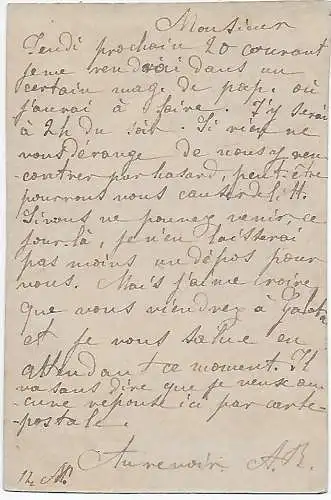 Monsieur
Jeudi prochain 20 courant
je me rendrai dans un
certain mag. de pap. où
j'aurai à faire. J'y serai
à 2 h du soir. Si rien ne
vous dérange de nous y ren
contrer par hasard, peut-être
pourrons nous causer de
Si vous ne pouvez venir ce
jour-là, je n'en laisserai
pas moins un dépos pour
vous. Mais j'aime croire
que vous viendrez à Galata
et je vous salue en
attendant ce moment. Il
va sans dire que je veux au-
cune réponse ici par carte-
postale.
Au revoir. A.B.